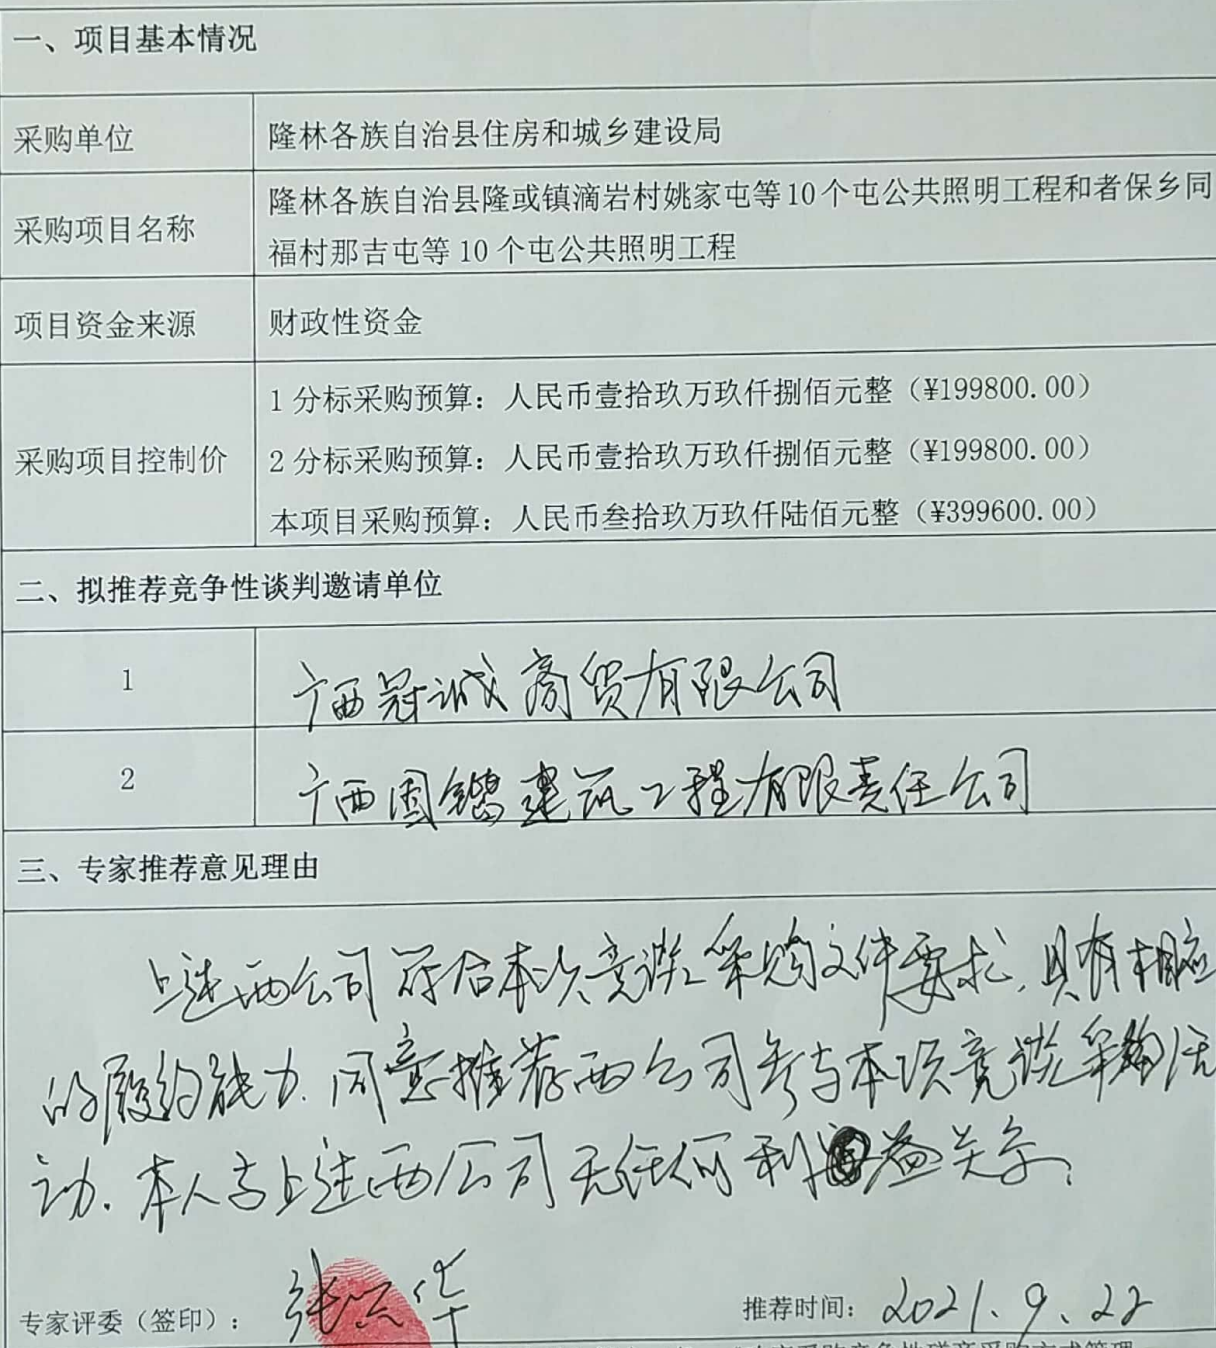 一、项目基本情况
采购单位
隆林各族自治县住房和城乡建设局
采购项目名称
隆林各族自治县隆或镇滴岩村姚家屯等10个屯公共照明工程和者保乡同
福村那吉屯等10个屯公共照明工程
项目资金来源
财政性资金
采购项目控制价
1分标采购预算：人民币壹拾玖万玖仟捌佰元整（¥199800.00）
2分标采购预算：人民币壹拾玖万玖仟捌佰元整（¥199800.00）
本项目采购预算：人民币叁拾玖万玖仟陆佰元整（¥399600.00）
二、拟推荐竞争性谈判邀请单位
1
广西冠诚商贸有限公司
2
广西国建筑工程有限责任公司
三、专家推荐意见理由
上述两公司符合本次竞谈采购文件要求，具有相应
的履约能力，同意推荐两公司参与本项竞谈采购活
动。本人与上述两公司无任何利益关系。
专家评委（签印）：
张 华
推荐时间：
2021.9.22